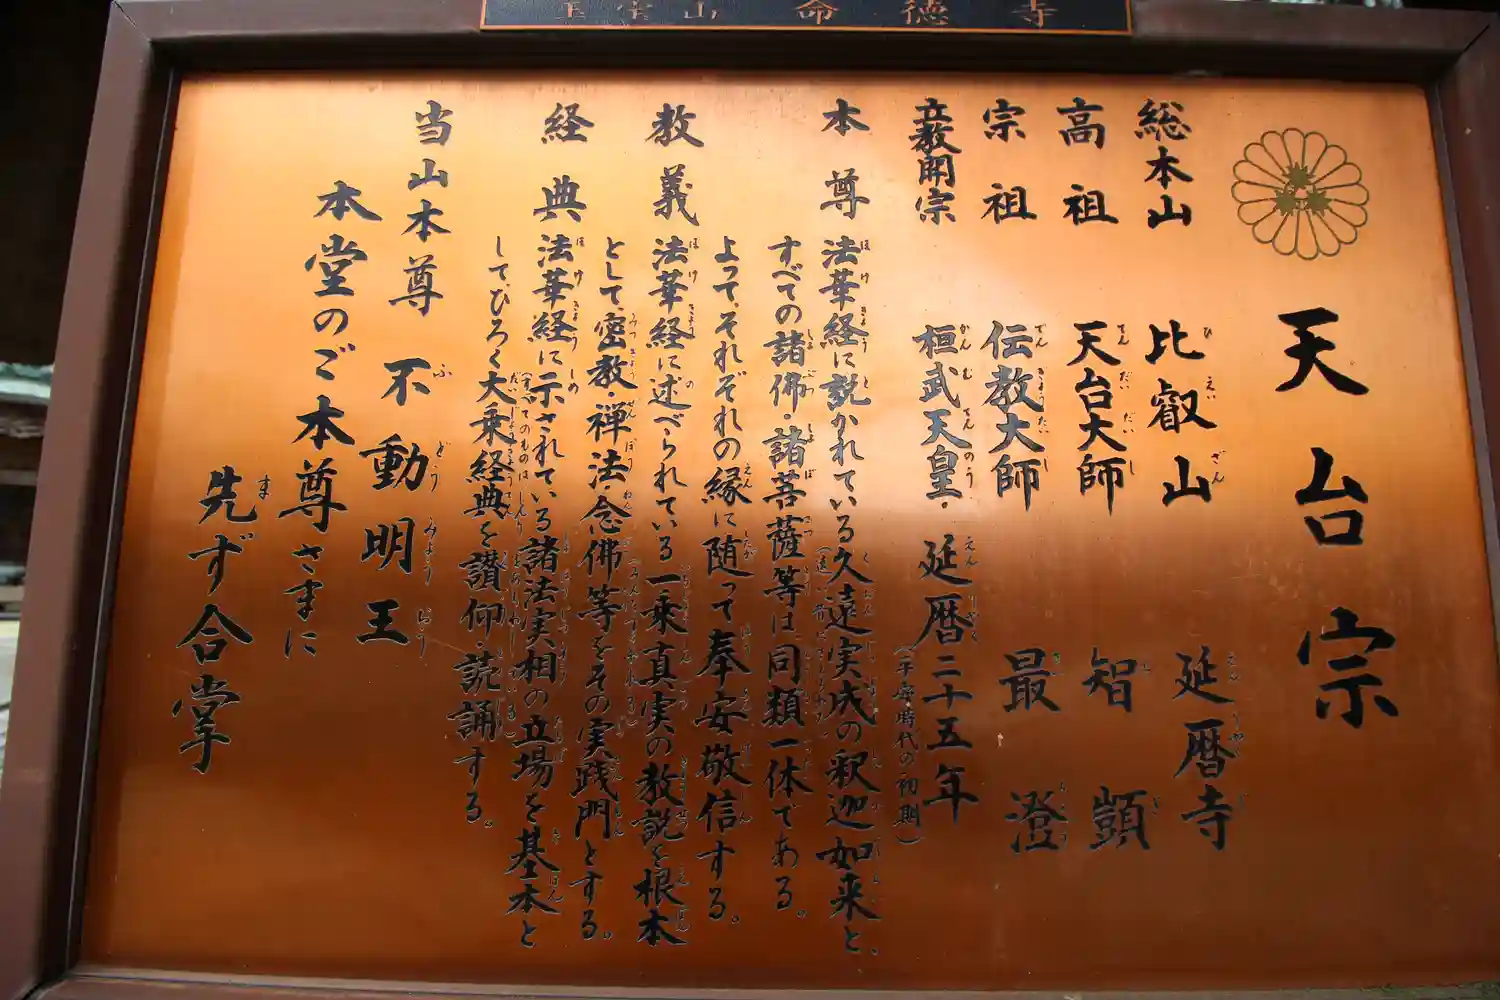 玉宝山 命徳寺
天台宗
総本山 比叡山 延暦寺
高祖 天台大師 智顗
宗祖 伝教大師 最澄
立教開宗 桓武天皇・延暦二十五年
(平安時代の初期)
本尊 法華経に説かれている久遠実成の釈迦如来と、
すべての諸佛・諸菩薩等は同類一体である。
よって、それぞれの縁に随って奉安敬信する。
教義 法華経に述べられている一乗真実の教説を根本
として、密教・禅法念佛等をその実践門とする。
経典 法華経に示されている諸法実相の立場を基本と
して、ひろく大乗経典を讃仰・読誦する。
当山本尊 不動明王
本堂のご本尊さまに
先ず合掌